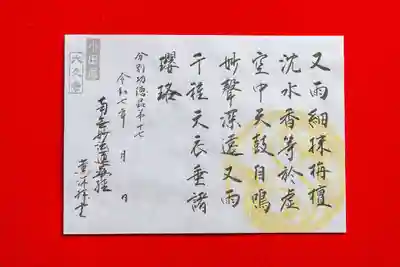 又雨細抹栴檀
沈水香等於虚
空中天鼓自鳴
妙聲深遠又雨
千種天衣垂諸
瓔珞
分別功徳品第十七
令和七年　月　日
南無妙法蓮華経
小田原